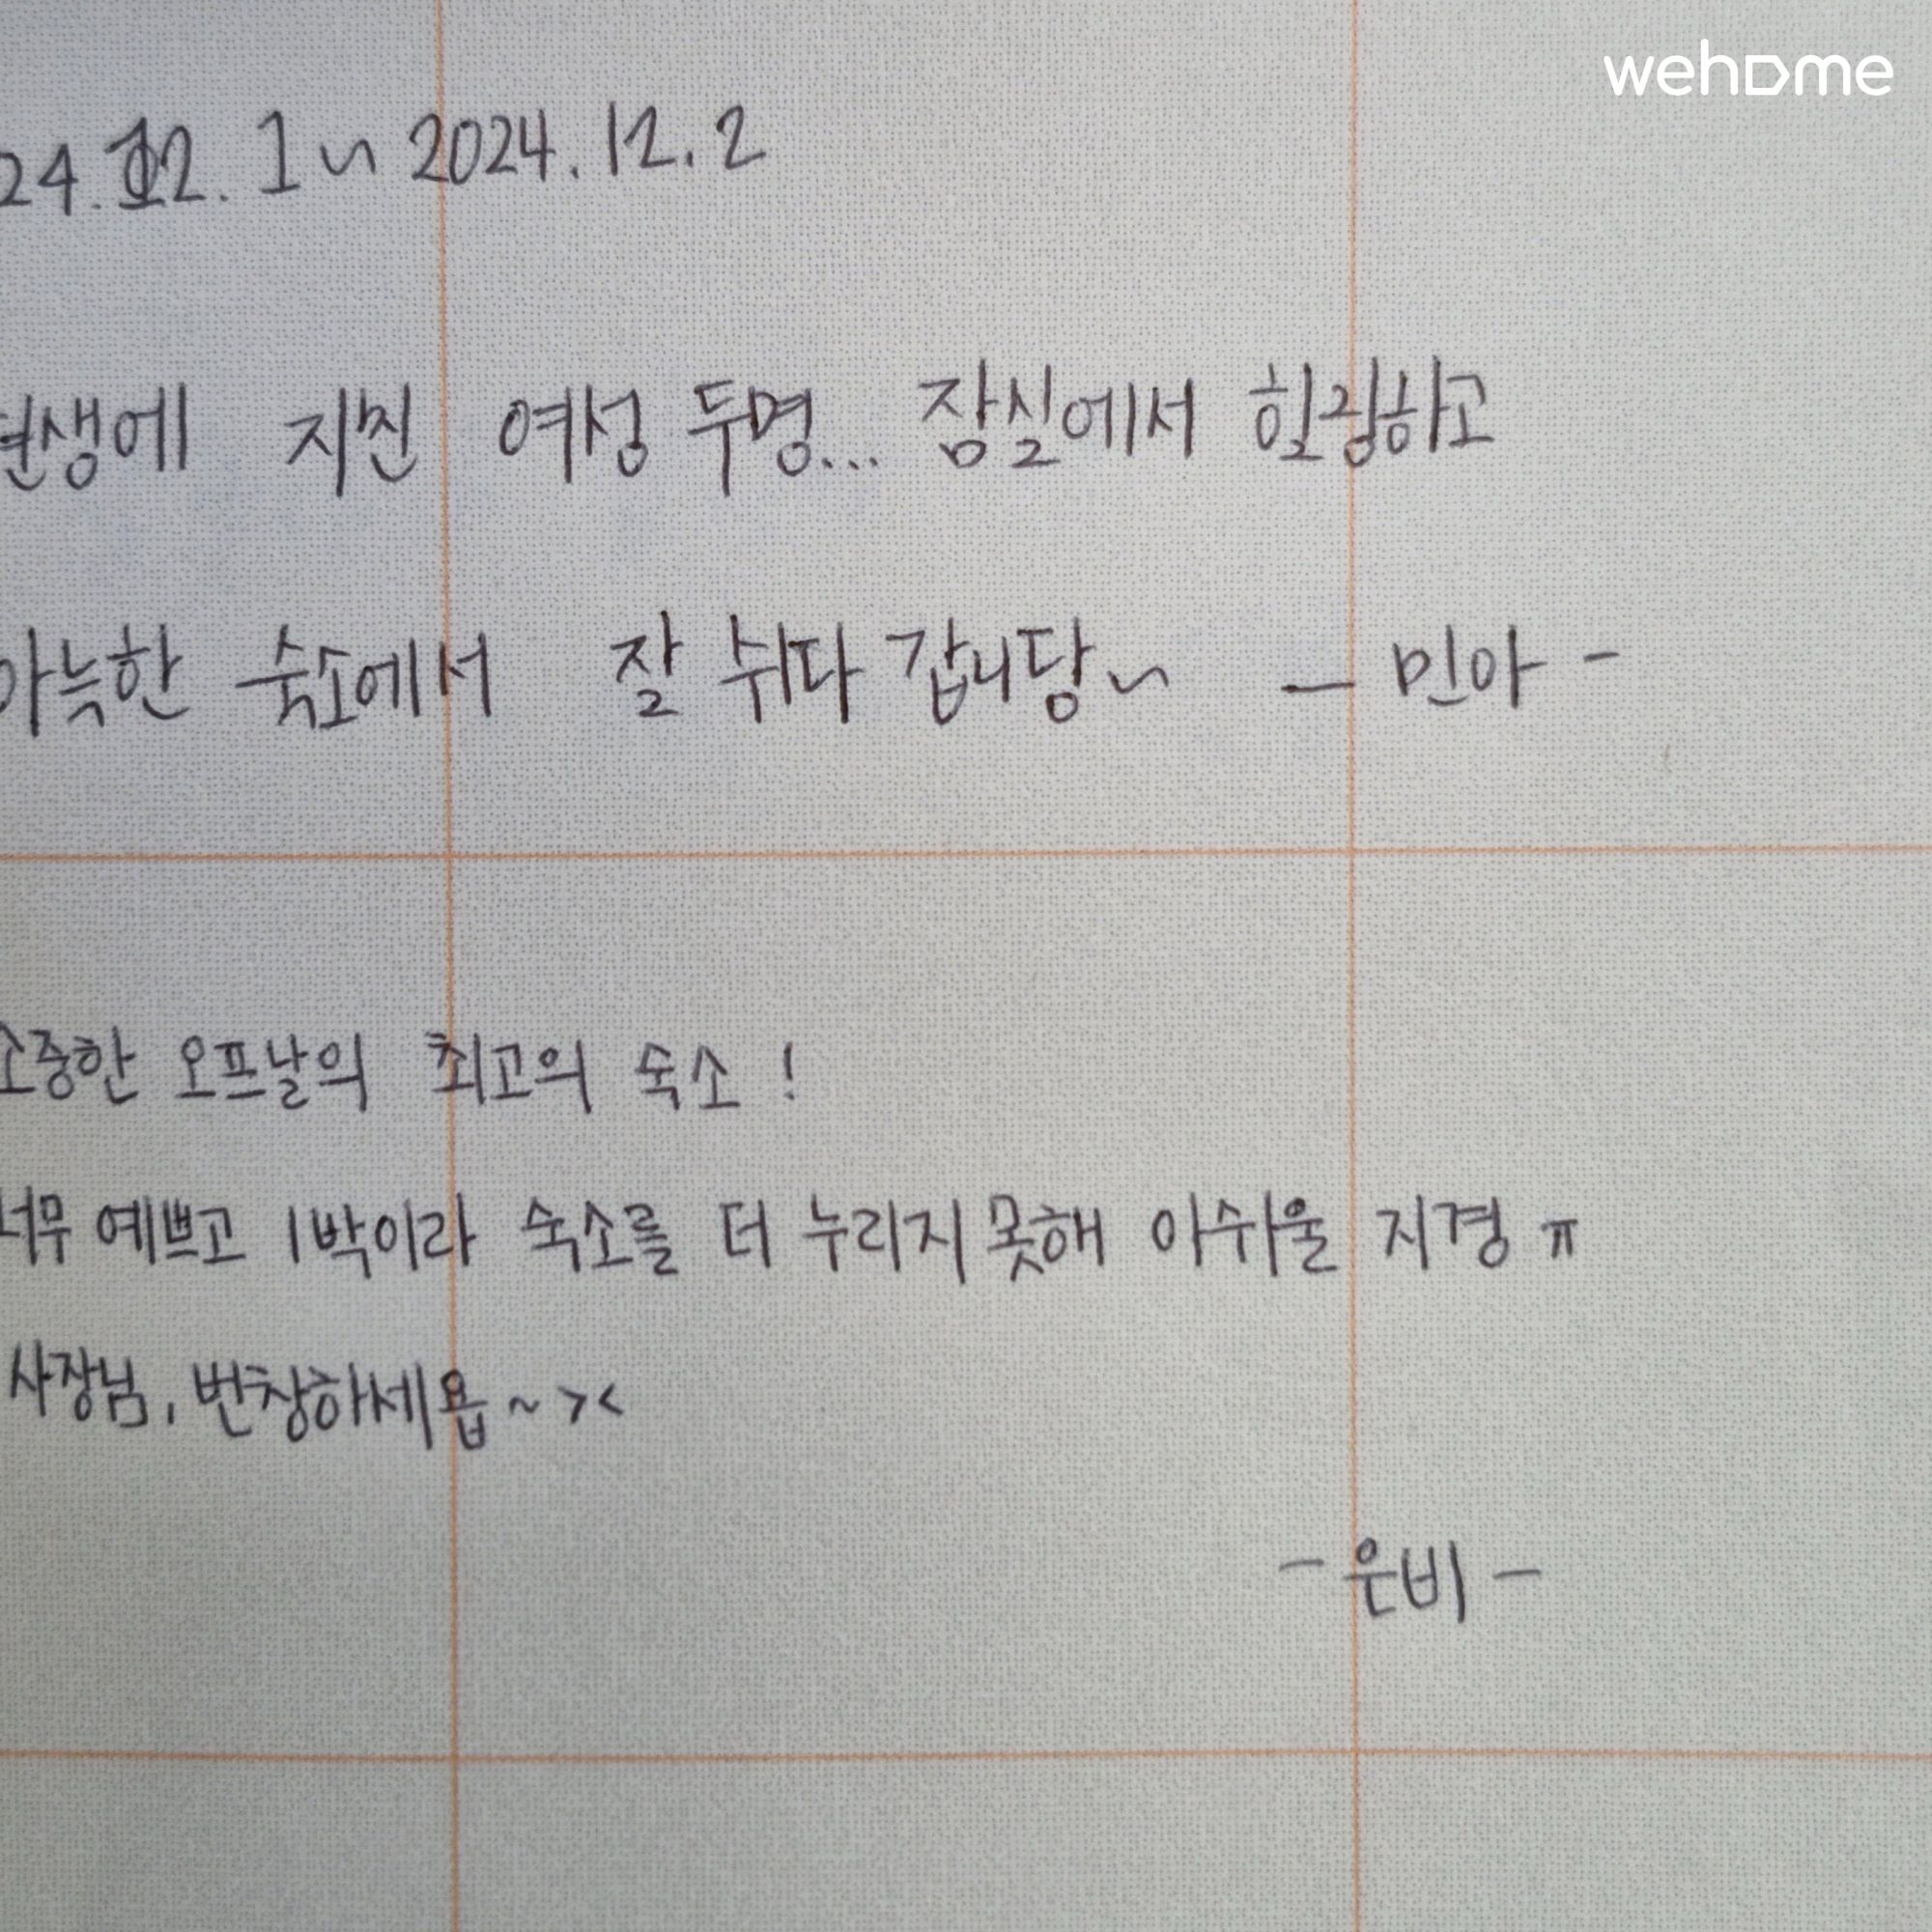 wehome
24.12.1~2024.12.2
현생에 지친 여성 두명... 잠실에서 힐링하고
아늑한 숙소에서 잘 쉬다 갑니당~ - 민아 -
소중한 오프날의 최고의 숙소!
너무 예쁘고 1박이라 숙소를 더 누리지 못해 아쉬울 지경 ㅠ
사장님, 번창하세욥~ ><
- 은비 -